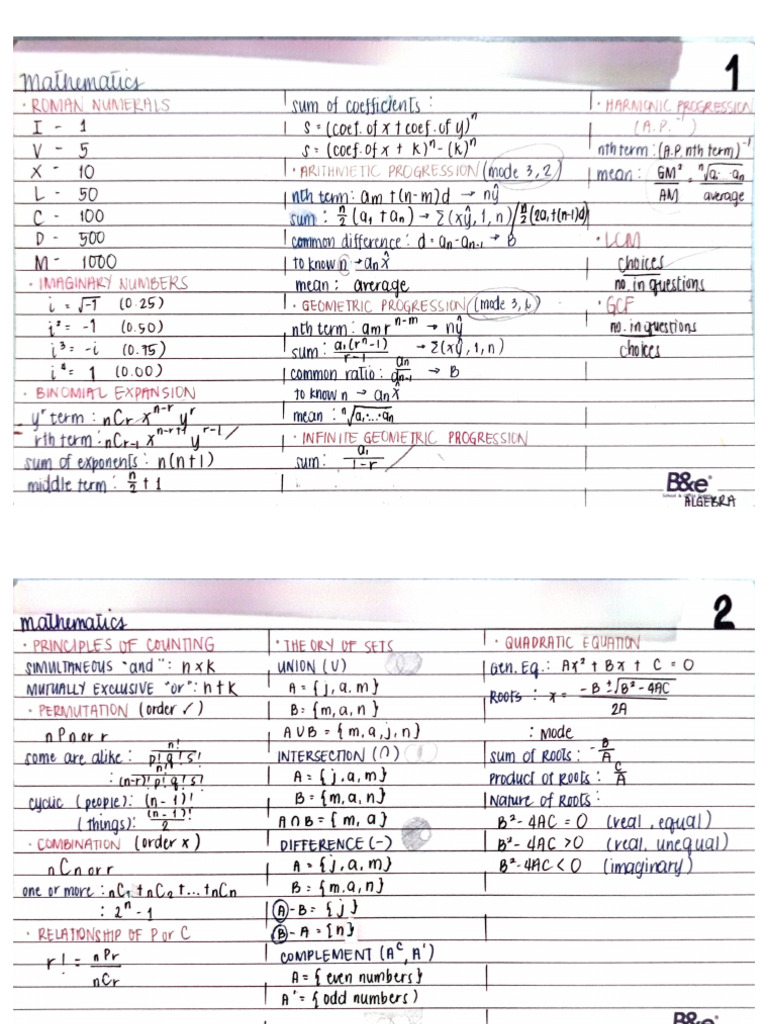 mathematics
1
· ROMAN NUMERALS
I - 1
V - 5
X - 10
L - 50
C - 100
D - 500
M - 1000
· IMAGINARY NUMBERS
i = √-1 (0.25)
i² = -1 (0.50)
i³ = -i (0.75)
i⁴ = 1 (0.00)
· BINOMIAL EXPANSION
yʳ term : nCr xⁿ⁻ʳ yʳ
rth term : nCr-1 xⁿ⁻ʳ⁺¹ yʳ⁻¹
sum of exponents : n(n+1)
middle term : n/2 + 1
sum of coefficients :
s = (coef. of x + coef. of y)ⁿ
s = (coef. of x + k)ⁿ - (k)ⁿ
· ARITHMETIC PROGRESSION (mode 3, 2)
nth term : am + (n-m)d → nŷ
sum : n/2 (a₁ + an) → Σ(xŷ, 1, n) / n/2 (2a₁+(n-1)d)
common difference : d = an - an-1 → B
to know n → an x̂
mean : average
· GEOMETRIC PROGRESSION (mode 3, 6)
nth term : am rⁿ⁻ᵐ → nŷ
sum : a₁(rⁿ-1)/r-1 → Σ(xŷ, 1, n)
common ratio : an/an-1 → B
to know n → an x̂
mean : ⁿ√a₁·...·an
· INFINITE GEOMETRIC PROGRESSION
sum : a₁/1-r
· HARMONIC PROGRESSION
(A.P.⁻¹)
nth term : (A.P. nth term)⁻¹
mean : GM²/AM = ⁿ√a₁···an/average
· LCM
choices
no. in questions
· GCF
no. in questions
choices
B&e
ALGEBRA
mathematics
2
· PRINCIPLES OF COUNTING
SIMULTANEOUS "and" : n x k
MUTUALLY EXCLUSIVE "or" : n + k
· PERMUTATION (order ✓)
nPn or r
some are alike : n!/p!q!s!
: n!/(n-r)!p!q!s!
cyclic (people) : (n-1)!
(things) : (n-1)!/2
· COMBINATION (order x)
nCn or r
one or more : nC₁ + nC₂ + ... + nCn
: 2ⁿ - 1
· RELATIONSHIP OF P or C
r! = nPr/nCr
· THEORY OF SETS
UNION (U)
A = {j, a, m}
B = {m, a, n}
A∪B = {m, a, j, n}
INTERSECTION (∩)
A = {j, a, m}
B = {m, a, n}
A∩B = {m, a}
DIFFERENCE (-)
A = {j, a, m}
B = {m, a, n}
A - B = {j}
B - A = {n}
COMPLEMENT (Aᶜ, A')
A = {even numbers}
A' = {odd numbers}
· QUADRATIC EQUATION
Gen. Eq. : Ax² + Bx + C = 0
Roots : x = -B ± √B² - 4AC/2A
: Mode
sum of Roots : -B/A
Product of Roots : C/A
Nature of Roots :
B² - 4AC = 0 (real, equal)
B² - 4AC > 0 (real, unequal)
B² - 4AC < 0 (imaginary)
B&e